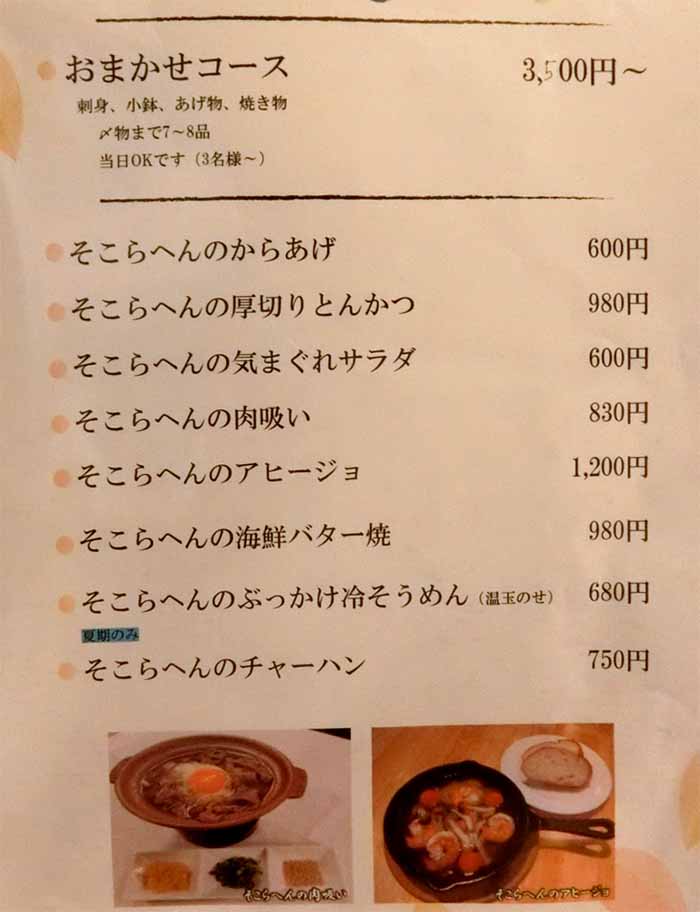 おまかせコース 3,500円～
刺身、小鉢、あげ物、焼き物
〆物まで7～8品
当日OKです（3名様～）
そこらへんのからあげ 600円
そこらへんの厚切りとんかつ 980円
そこらへんの気まぐれサラダ 600円
そこらへんの肉吸い 830円
そこらへんのアヒージョ 1,200円
そこらへんの海鮮バター焼 980円
そこらへんのぶっかけ冷そうめん（温玉のせ） 680円
夏期のみ
そこらへんのチャーハン 750円
そこらへんの肉吸い
そこらへんのアヒージョ